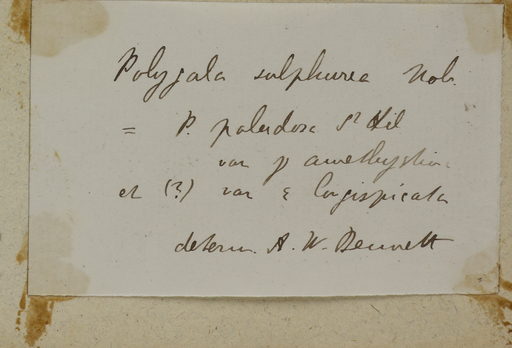 Polygala sulphurea Nob.
= P. paludosa St Hil
var γ amethystina
et (?) var ε longispicata
determ. A. W. Bennett